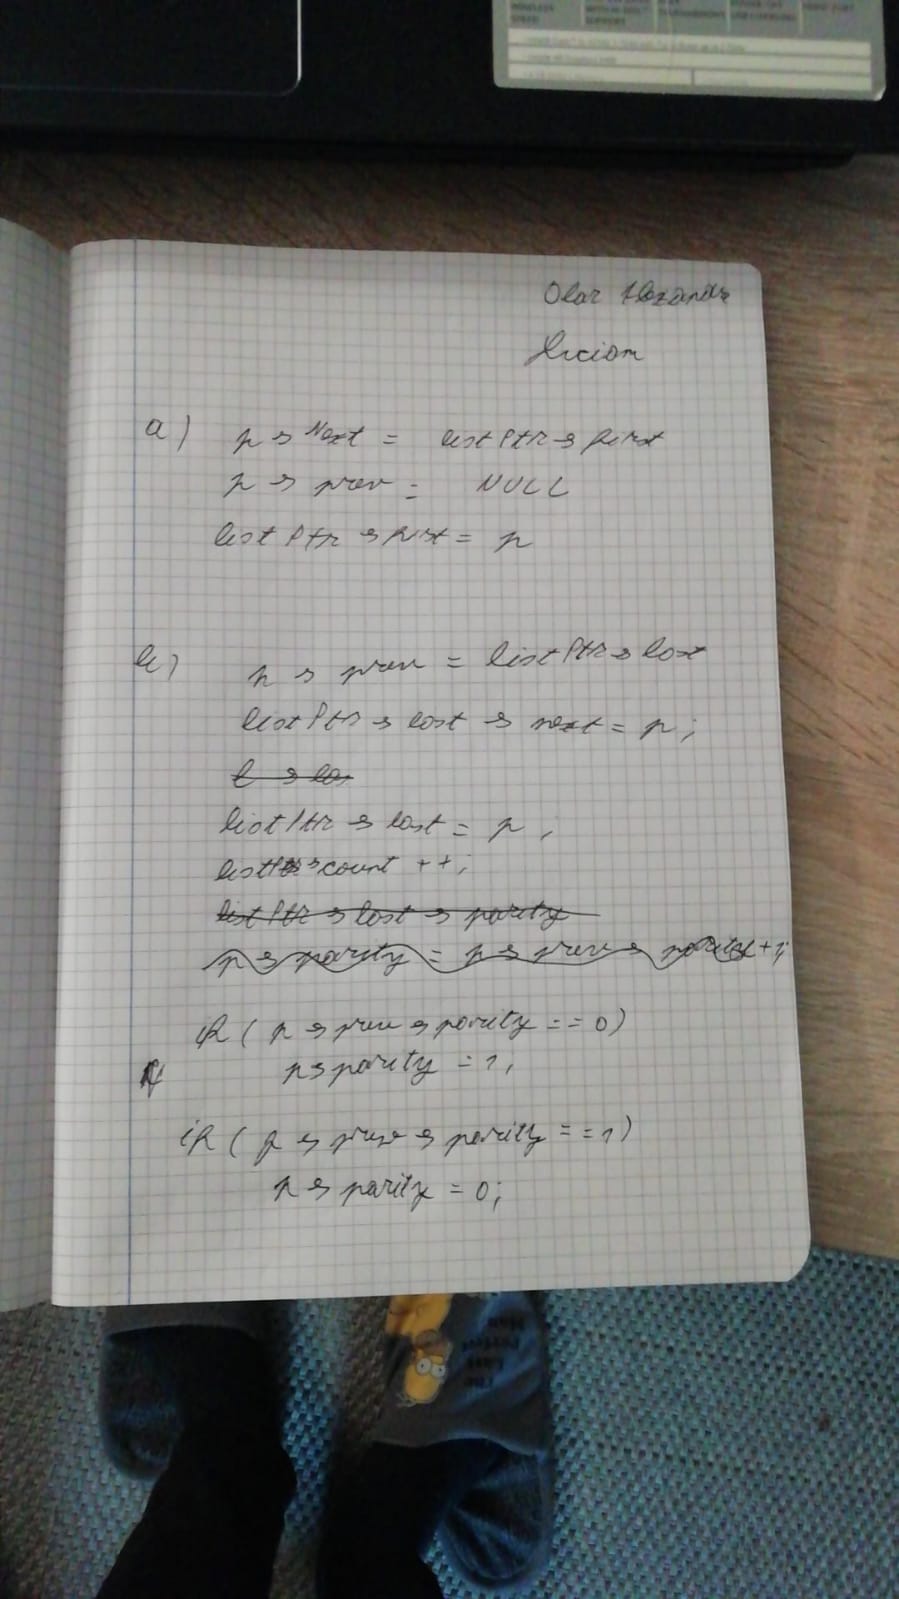 Olar Alexandr
Lucian
a) p → Next = listPtr → first
p → prev = NULL
listPtr → first = p
b) p → prev = listPtr → last
listPtr → last → next = p;
l → las
listPtr → last = p;
listPtr → count ++;
listPtr → last → parity
p → parity = p → prev → parity + 1;
if ( p → prev → parity == 0)
p → parity = 1;
if ( p → prev → parity == 1)
p → parity = 0;